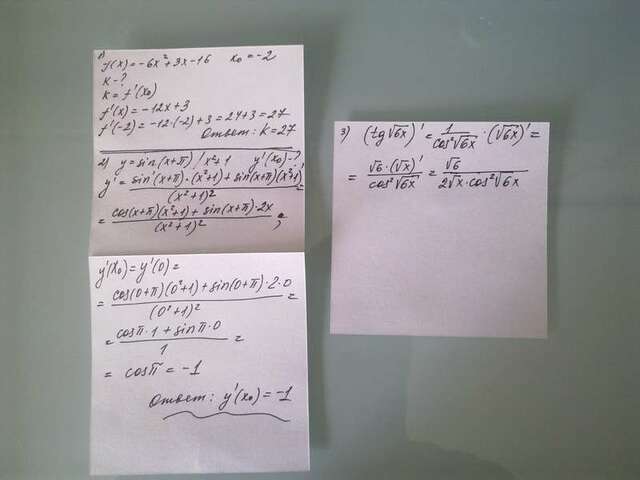 1)
f(x) = -6x² + 3x - 16    x₀ = -2
K - ?
K = f'(x₀)
f'(x) = -12x + 3
f'(-2) = -12·(-2) + 3 = 24 + 3 = 27
Ответ: K = 27
2) y = sin(x+π) / x²+1    y'(x₀) - ?
y' = (sin'(x+π)·(x²+1) + sin(x+π)(x²+1)') / (x²+1)² =
= (cos(x+π)(x²+1) + sin(x+π)·2x) / (x²+1)² ;
y'(x₀) = y'(0) =
= (cos(0+π)(0²+1) + sin(0+π)·2·0) / (0²+1)² =
= (cosπ·1 + sinπ·0) / 1 =
= cosπ = -1
Ответ: y'(x₀) = -1
3) (tg√6x)' = 1 / cos²√6x · (√6x)' =
= √6·(√x)' / cos²√6x = √6 / 2√x·cos²√6x